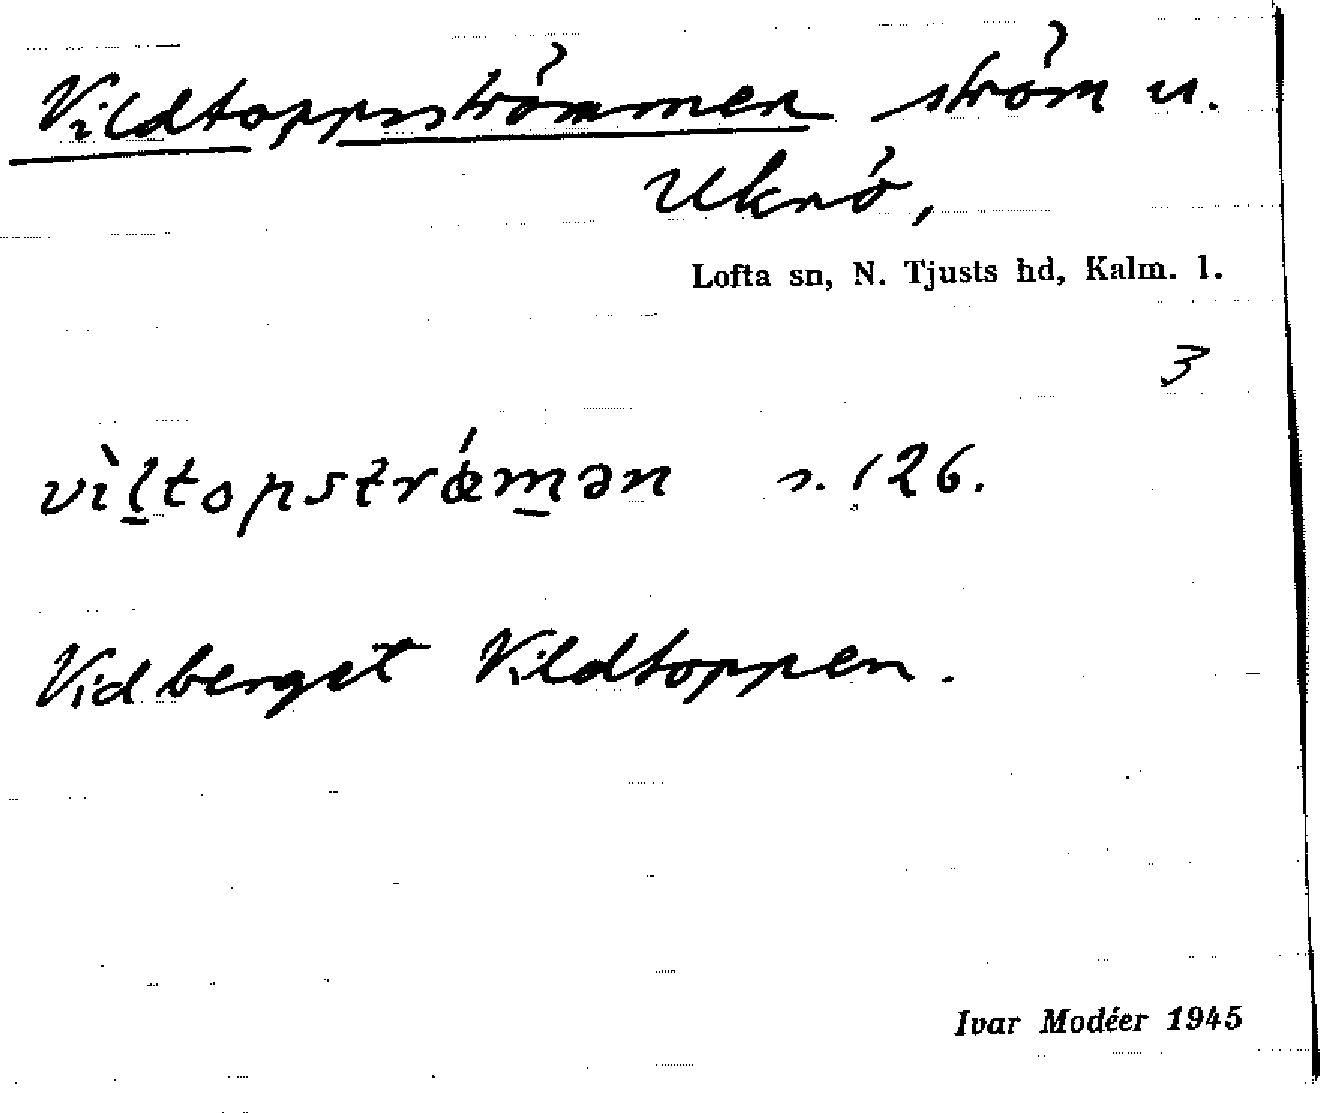 Vildtoppsströmmen ström u.
Uknö,
Lofta sn, N. Tjusts hd, Kalm. l.
3
vìl̠topstrǿm̠ən s. 126.
Vid berget Vildtoppen.
Ivar Modéer 1945